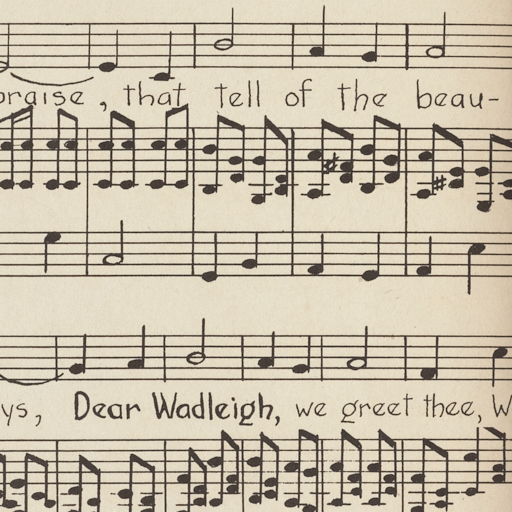 praise, that tell of the beau-
ys, Dear Wadleigh, we greet thee, W